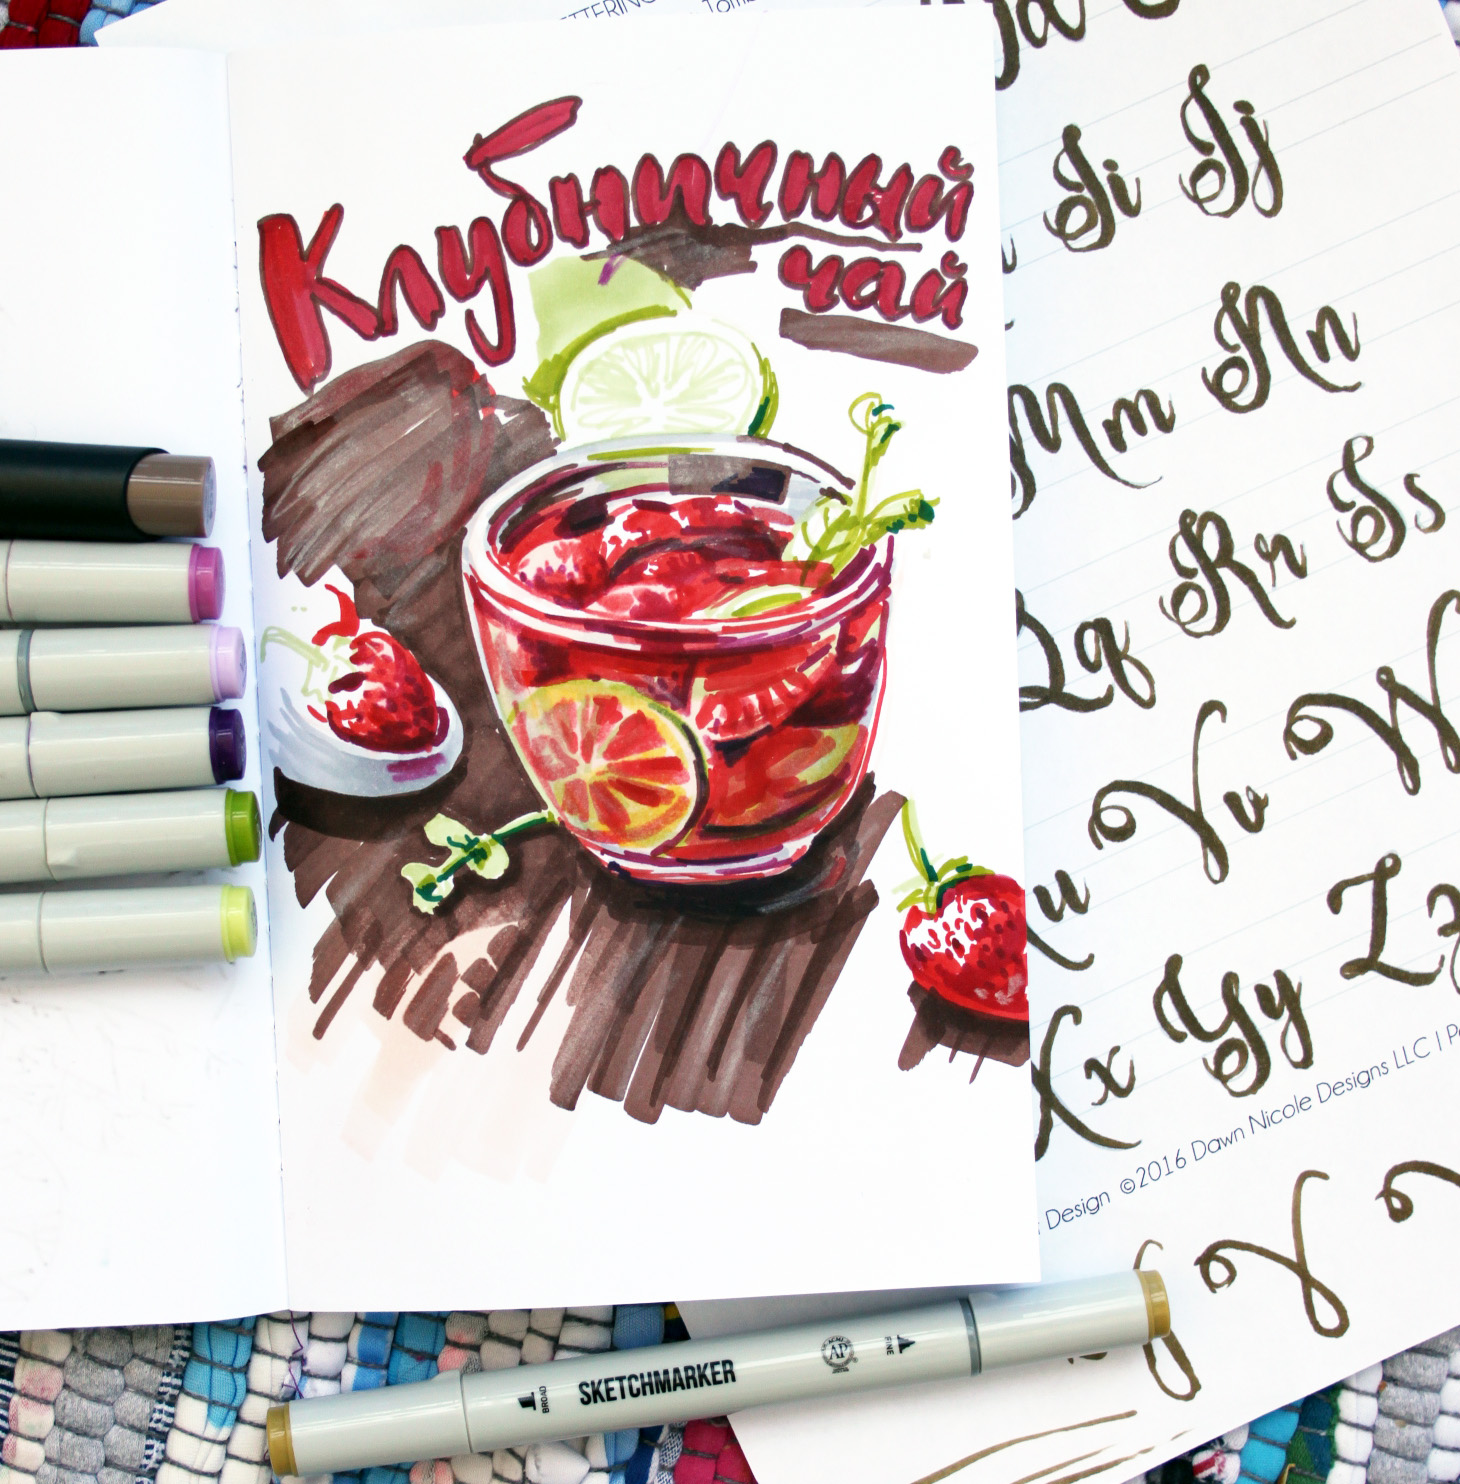 Клубничный
чай
Ii Jj
Mm Nn
Qq Rr Ss
u Vv W
Xx Yy Zz
Design ©2016 Dawn Nicole Designs LLC |
BROAD SKETCHMARKER AP FINE